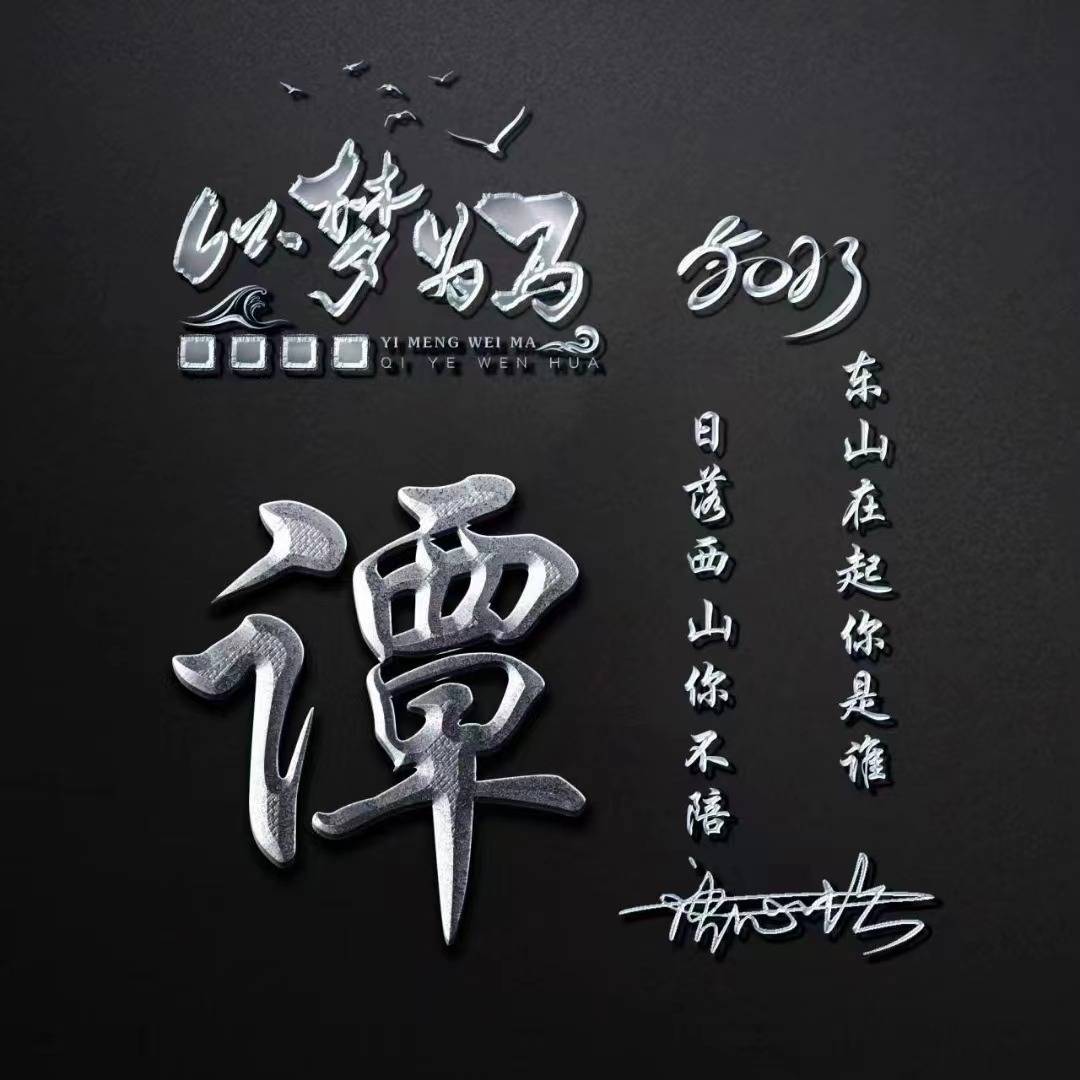 以梦为马
YI MENG WEI MA
QI YE WEN HUA
2023
东山在起你是谁
日落西山你不陪
谭